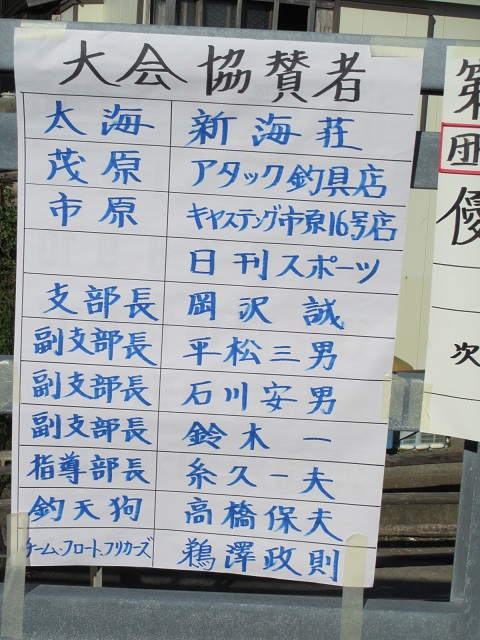 大会協賛者
太海 新海荘
茂原 アタック釣具店
市原 キャスティング市原16号店
日刊スポーツ
支部長 岡沢誠
副支部長 平松三男
副支部長 石川安男
副支部長 鈴木一
指導部長 糸久一夫
釣天狗 高橋保夫
チーム、フロートフリカーズ 鵜澤政則
第
団
優
次